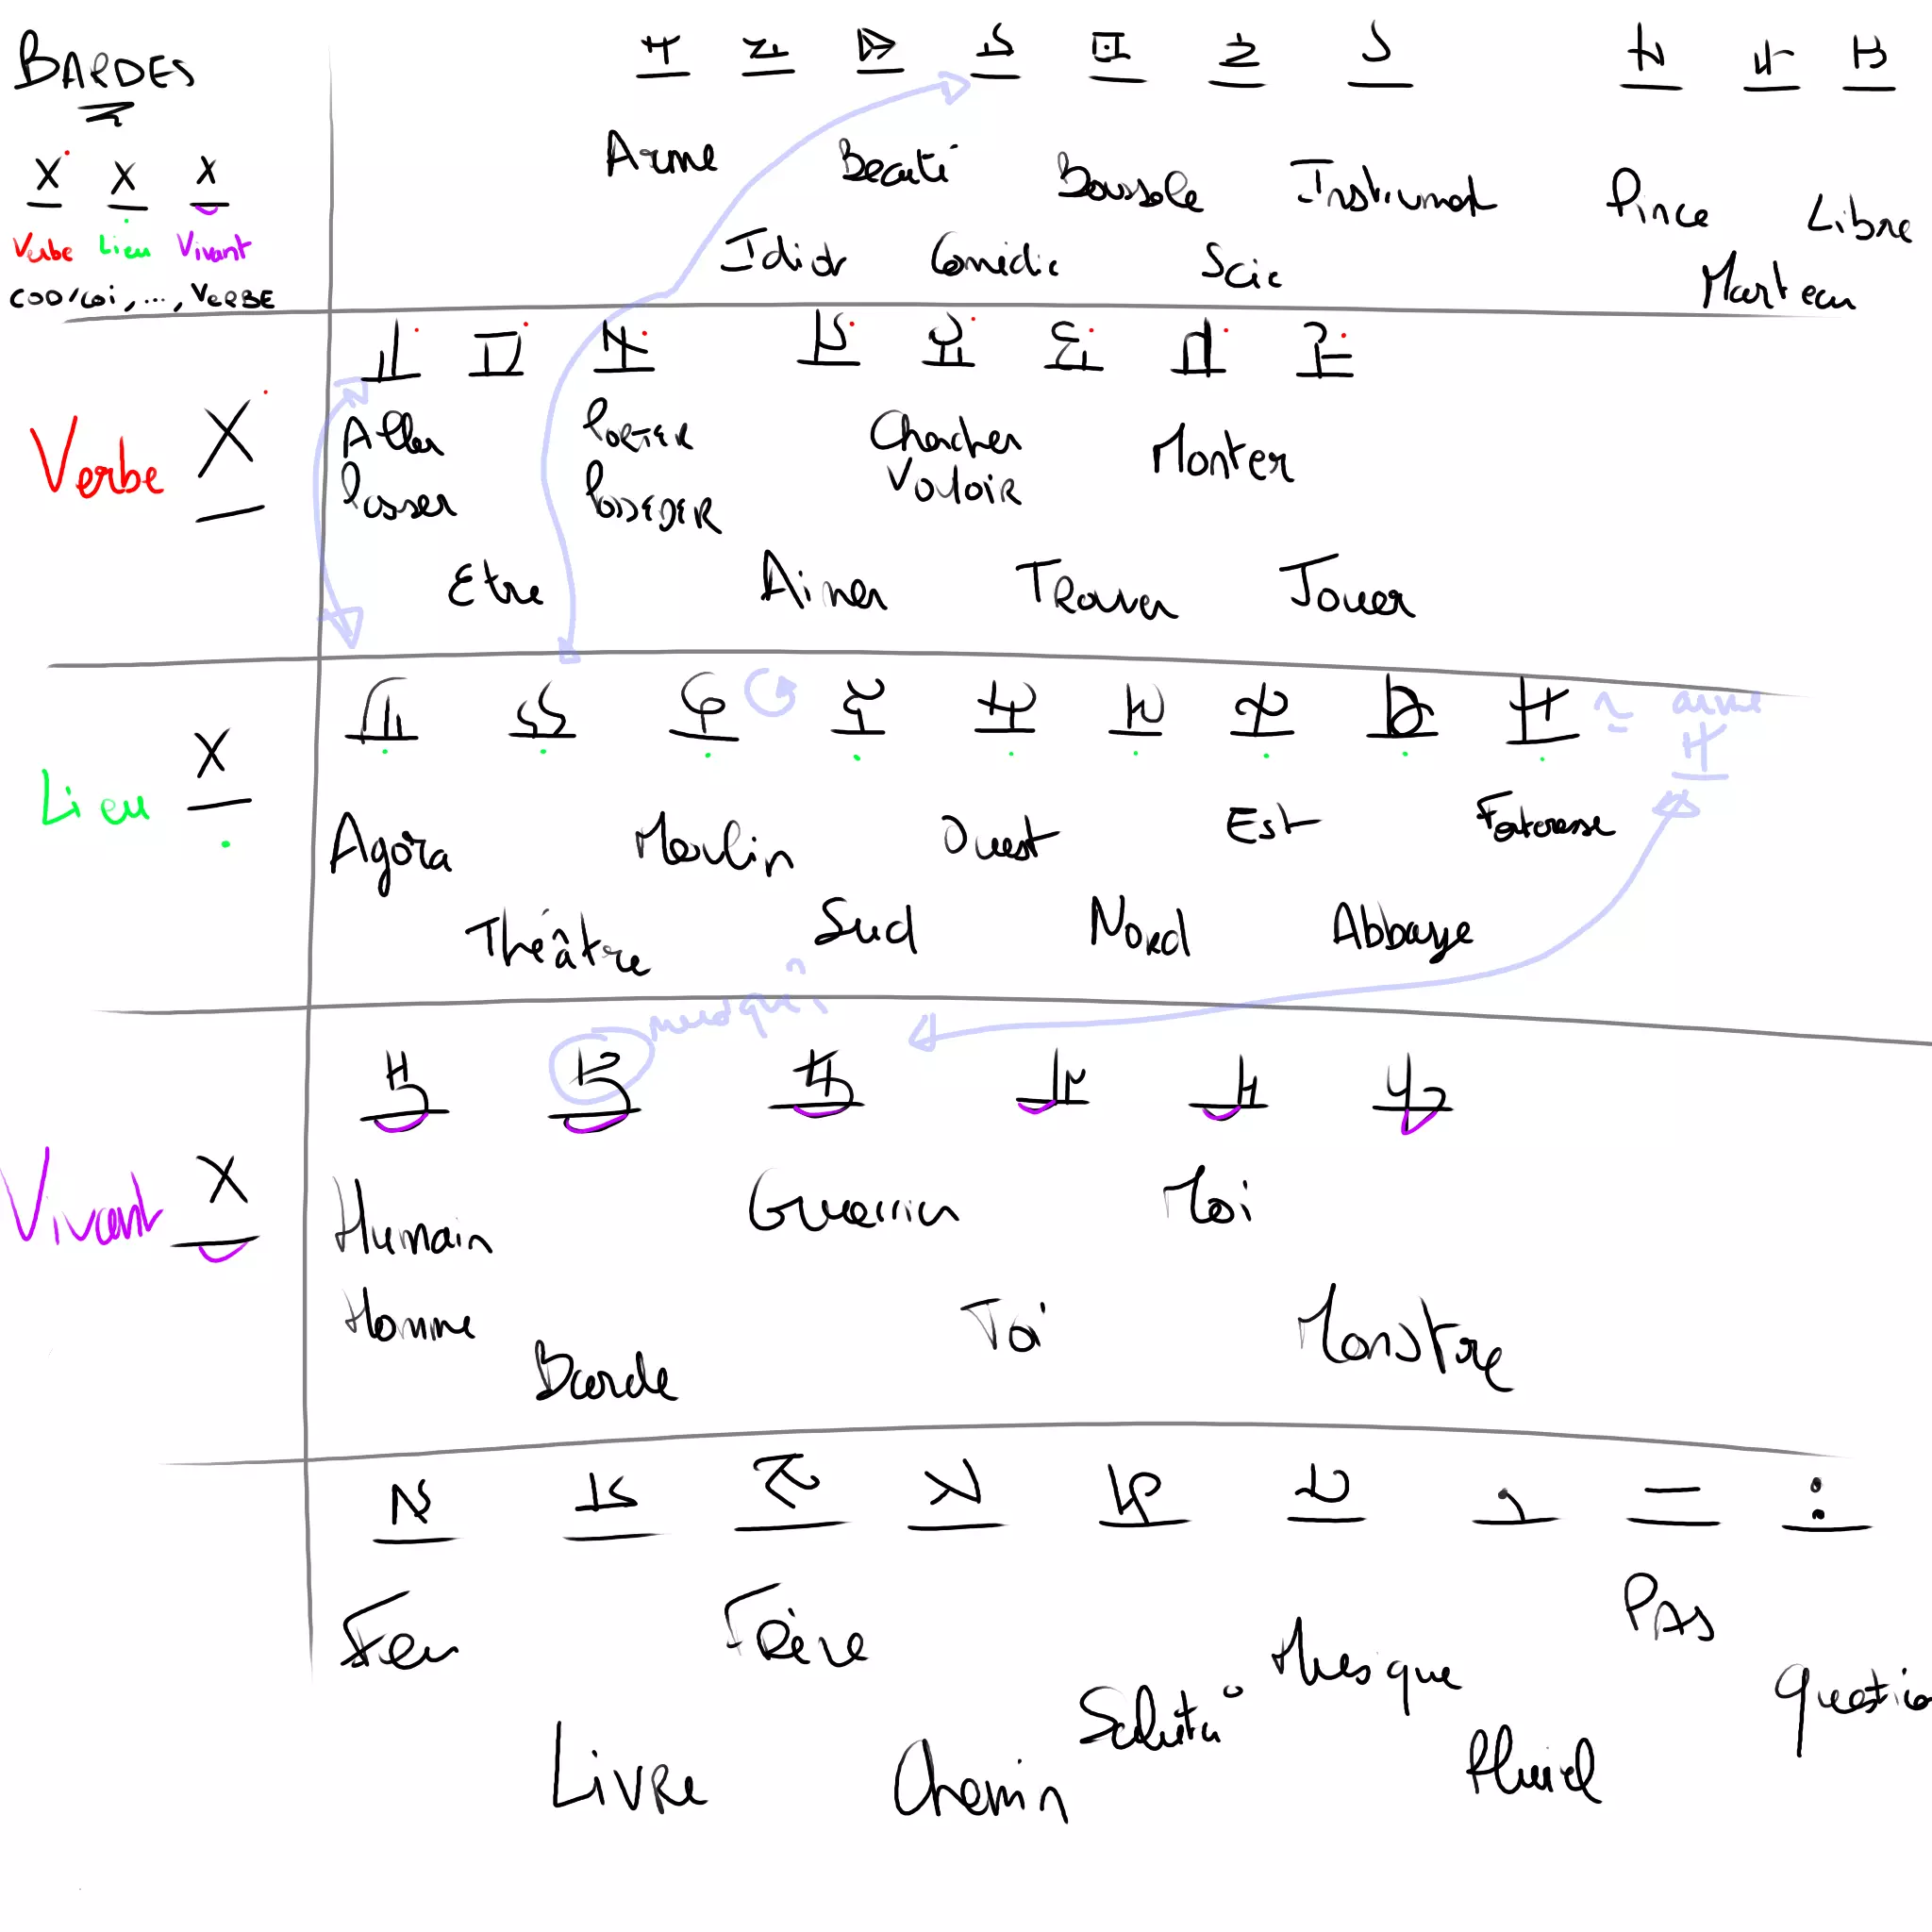 BARDES
X X X
Verbe Lieu Vivant
COD/COI, ..., VERBE
Arme Beauté Boussole Instrument Pince Libre
Idiot Comédie Scie Marteau
Verbe X
Aller PORTER Chercher Monter
Passer POSSEDER Vouloir
Etre Aimer Trouver Jouer
Lieu X
≃ arme
Agora Moulin Ouest Est Forteresse
Théâtre Sud Nord Abbaye
Vivant X
Humain Guerrier Moi
Homme Barde Toi Monstre
Feu Frère Musique PAS
Livre Chemin Salut Pluriel Question